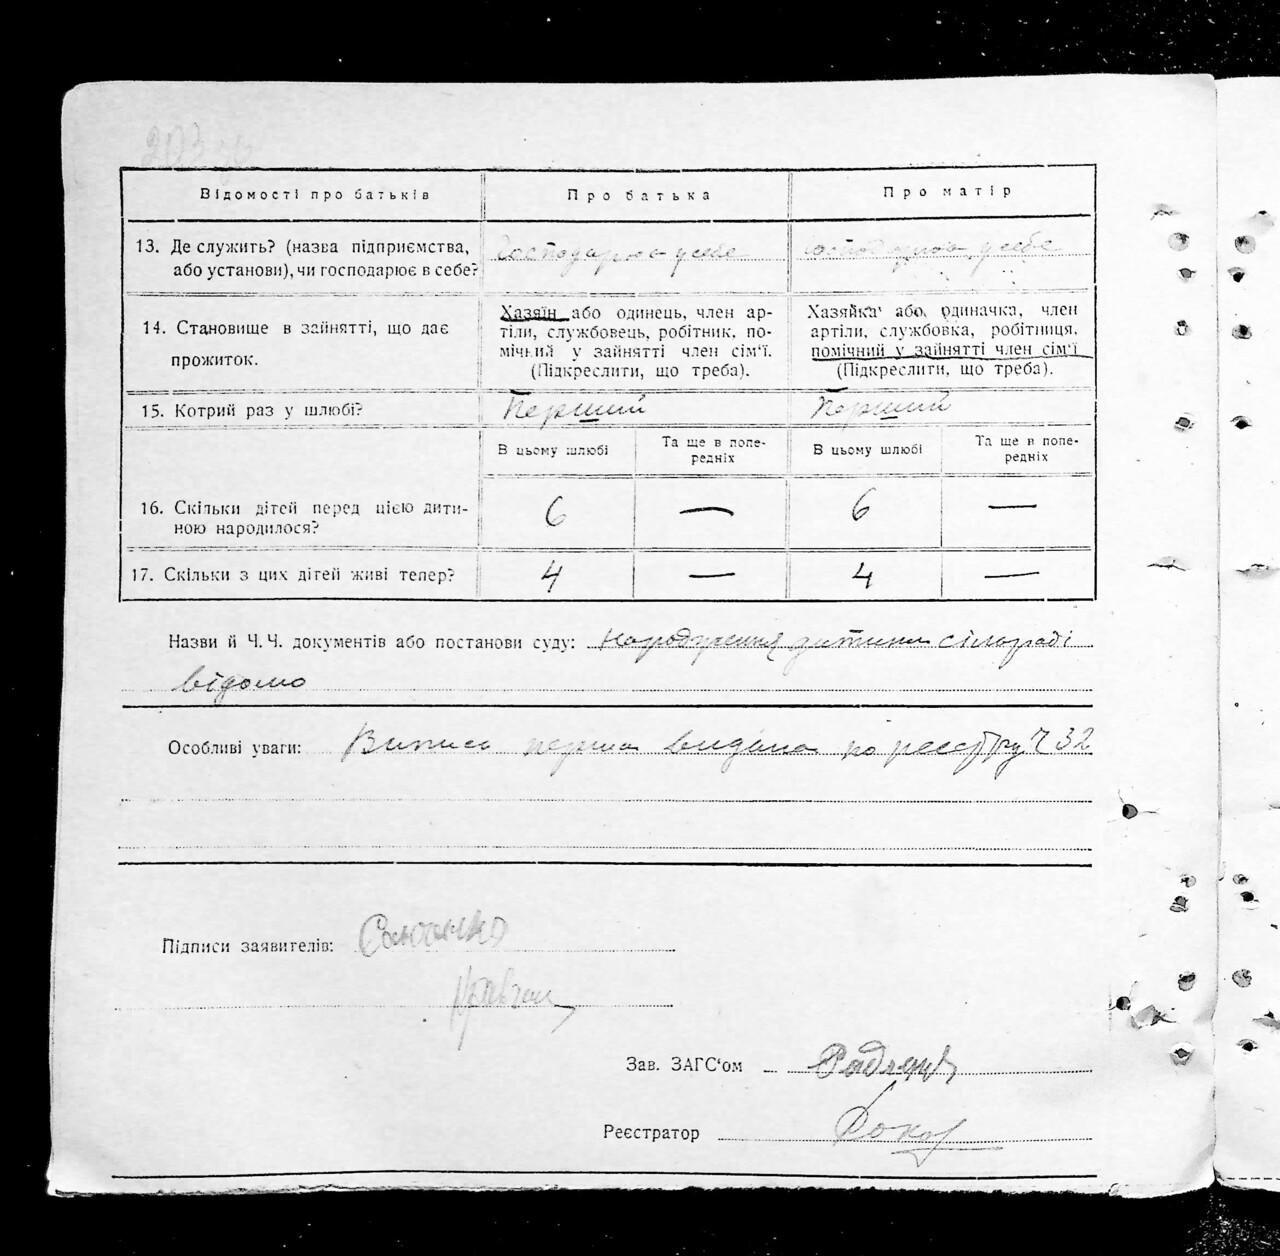 Відомості про батьків
Про батька
Про матір
13. Де служить? (назва підприємства,
або установи), чи господарює в себе?
Господарює у себе
Господарює у себе
14. Становище в зайнятті, що дає
прожиток.
Хазяїн або одинець, член ар-
тіли, службовець, робітник, по-
мічний у зайнятті член сім'ї.
(Підкреслити, що треба).
Хазяйка або одиначка, член
артіли, службовка, робітниця,
помічний у зайнятті член сім'ї
(Підкреслити, що треба).
15. Котрий раз у шлюбі?
Перший
Перший
В цьому шлюбі
Та ще в попе-
редніх
В цьому шлюбі
Та ще в попе-
редніх
16. Скільки дітей перед цією дити-
ною народилося?
6
—
6
—
17. Скільки з цих дітей живі тепер?
4
—
4
—
Назви й Ч.Ч. документів або постанови суду: народження дитини сільраді
відомо
Особливі уваги: Випись перша видана по реєстру Ч 32
Підписи заявителів:
Зав. ЗАГС'ом
Реєстратор